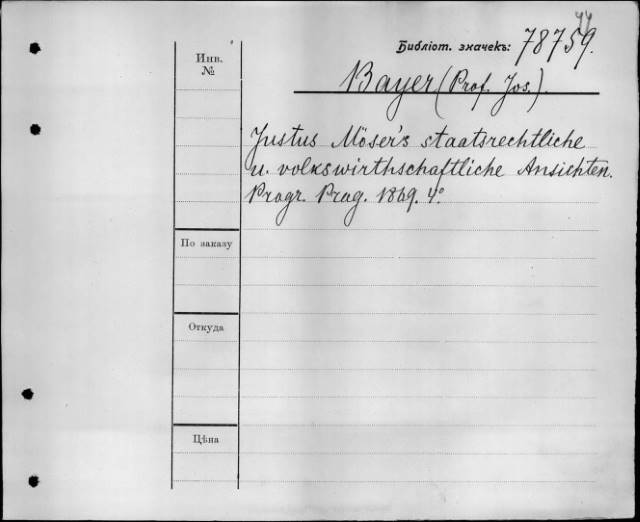 44
Библіот. значекъ: 78759.
Инв.
№
Bayer (Prof. Jos.).
Justus Möser's staatsrechtliche
u. volkswirthschaftliche Ansichten.
Progr. Prag. 1869. 4°
По заказу
Откуда
Цѣна